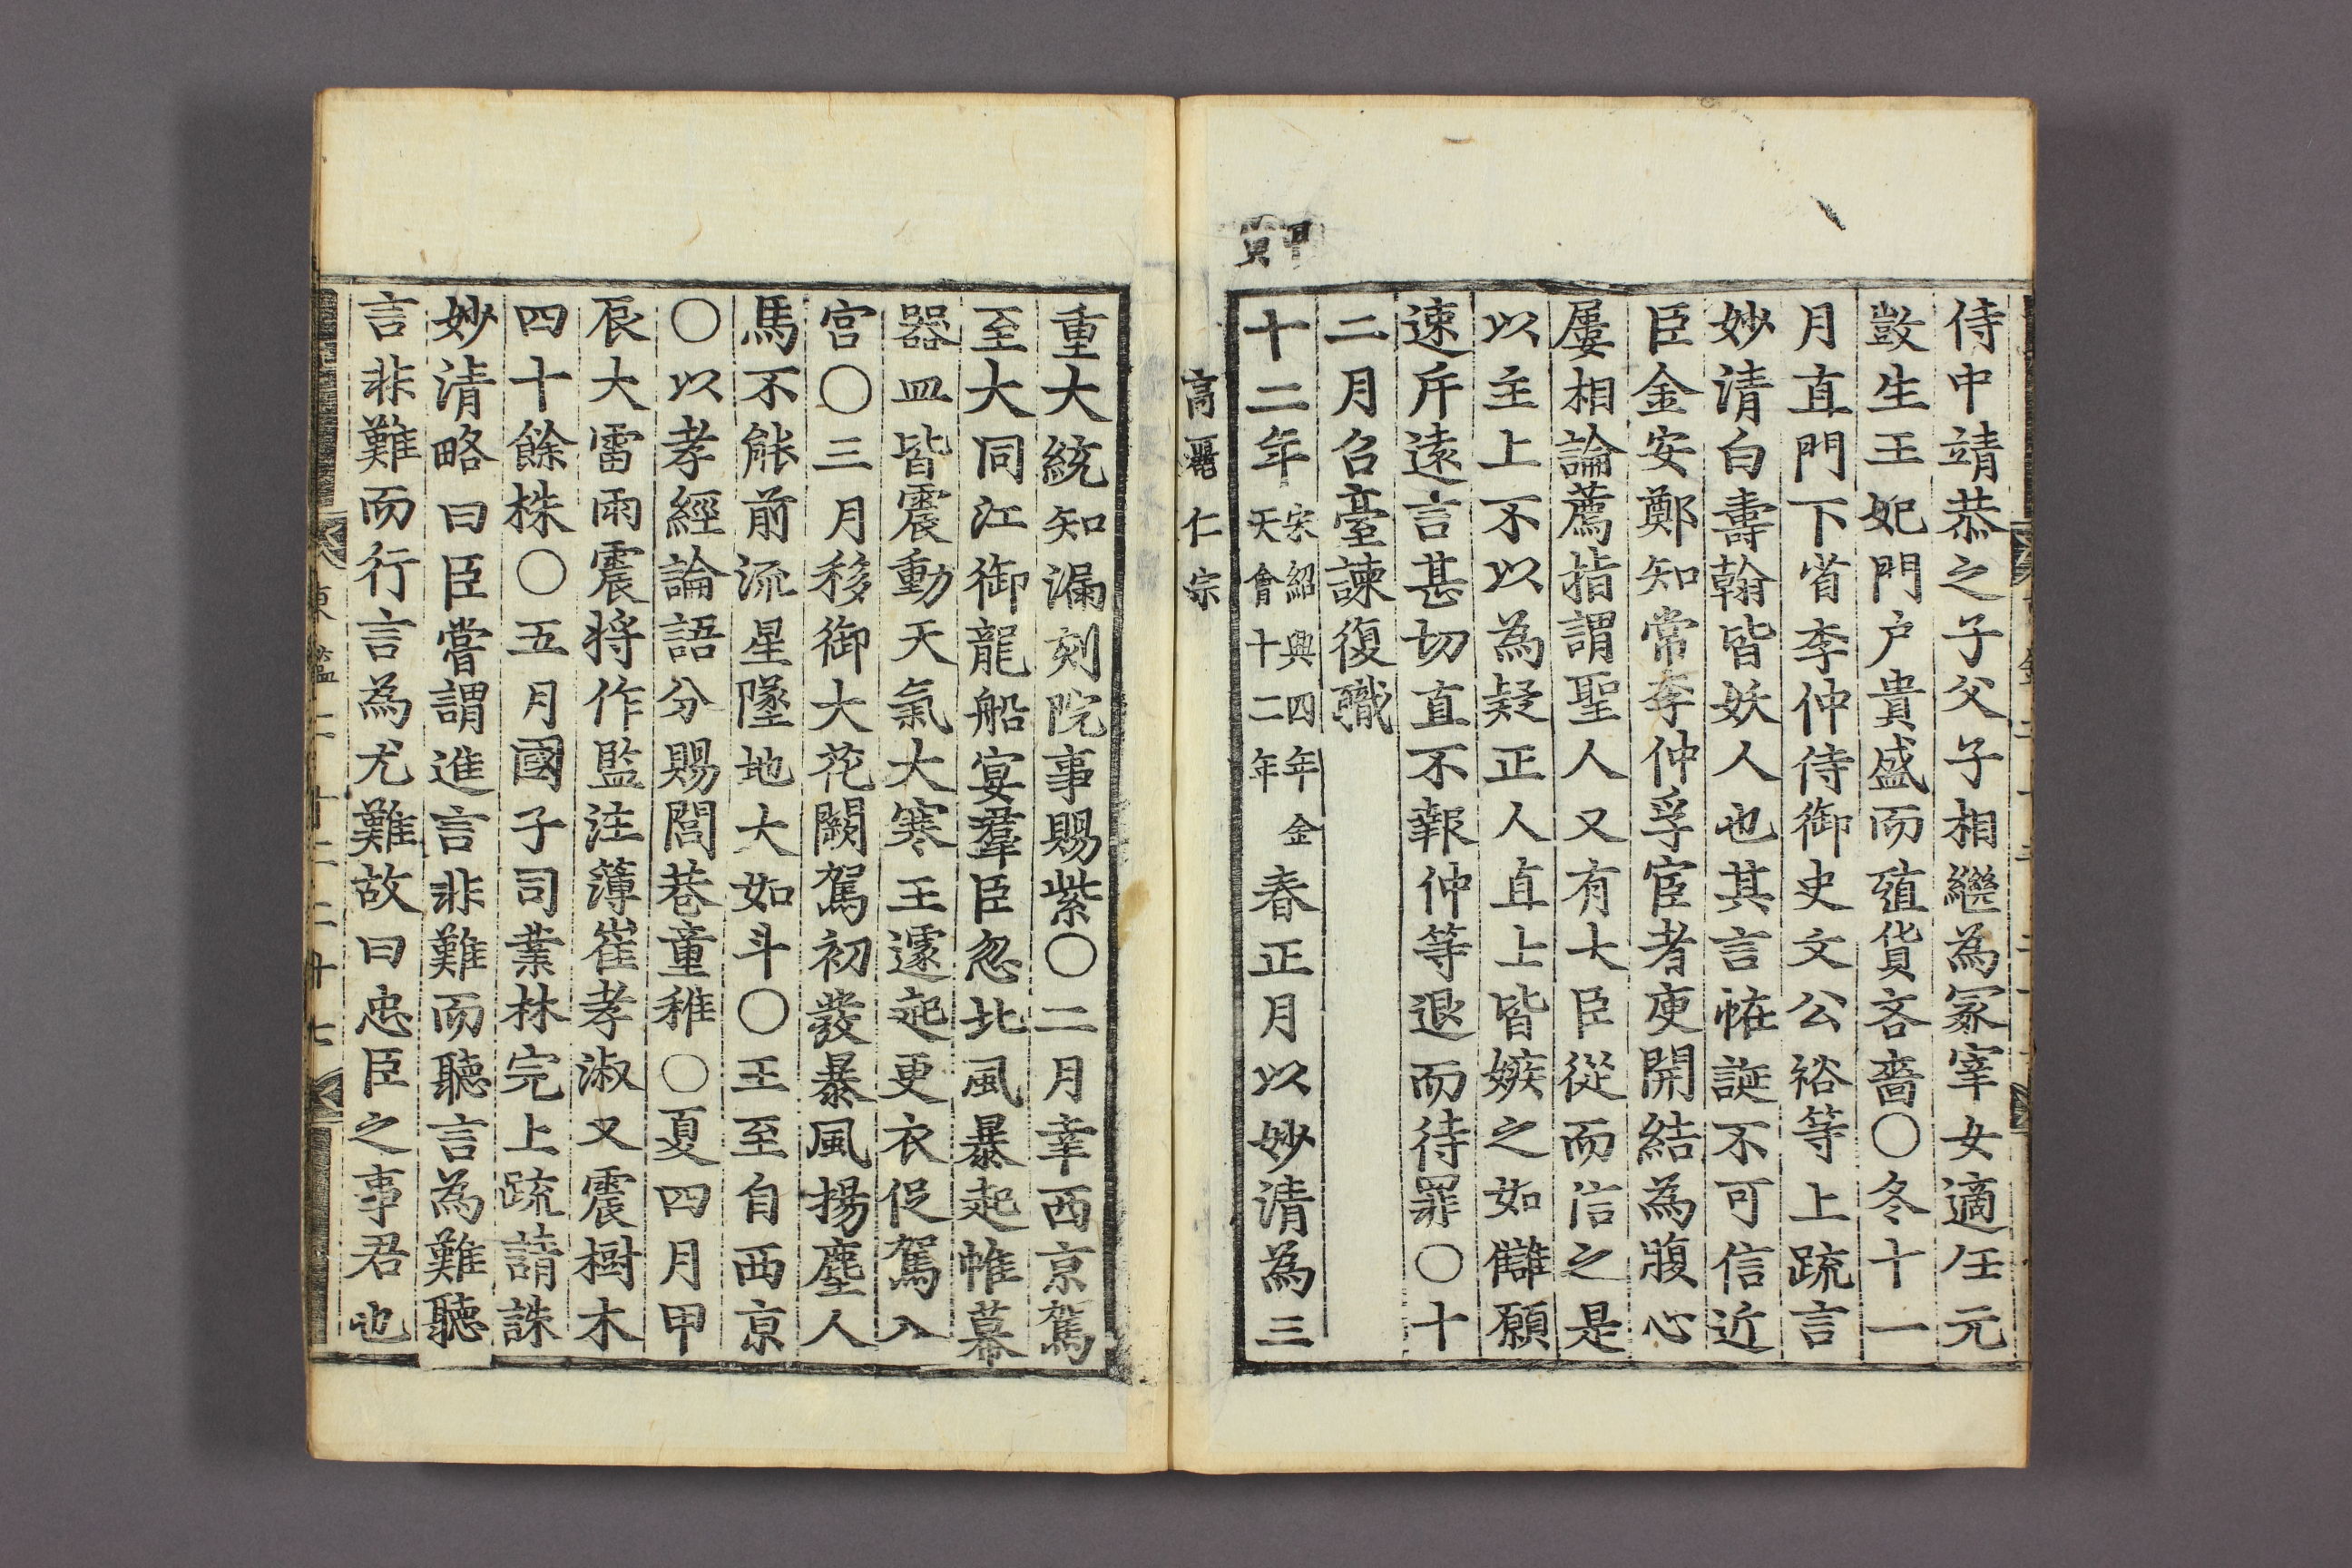 侍中靖恭之子父子相繼為冢宰女適任元
敳生王妃門户貴盛而殖貨吝嗇〇冬十一
月直門下省李仲侍御史文公裕等上疏言
妙清白壽翰皆妖人也其言恠誕不可信近
臣金安鄭知常李仲孚宦者庾開結為腹心
屢相論薦指謂聖人又有大臣從而信之是
以主上不以為疑正人直上皆嫉之如讎願
速斥遠言甚切直不報仲等退而待罪〇十
二月召臺諫復職
甲寅
十二年宋紹興四年金天會十二年春正月以妙清為三
高麗仁宗
重大統知漏刻院事賜紫〇二月幸西京駕
至大同江御龍船宴羣臣忽北風暴起帷幕
器皿皆震動天氣大寒王遽起更衣促駕入
宮〇三月移御大花闕駕初發暴風揚塵人
馬不能前流星墜地大如斗〇王至自西京
〇以孝經論語分賜閭巷童稚〇夏四月甲
辰大雷雨震將作監注簿崔孝淑又震樹木
四十餘株〇五月國子司業林完上疏請誅
妙清略曰臣嘗謂進言非難而聽言為難聽
言非難而行言為尤難故曰忠臣之事君也